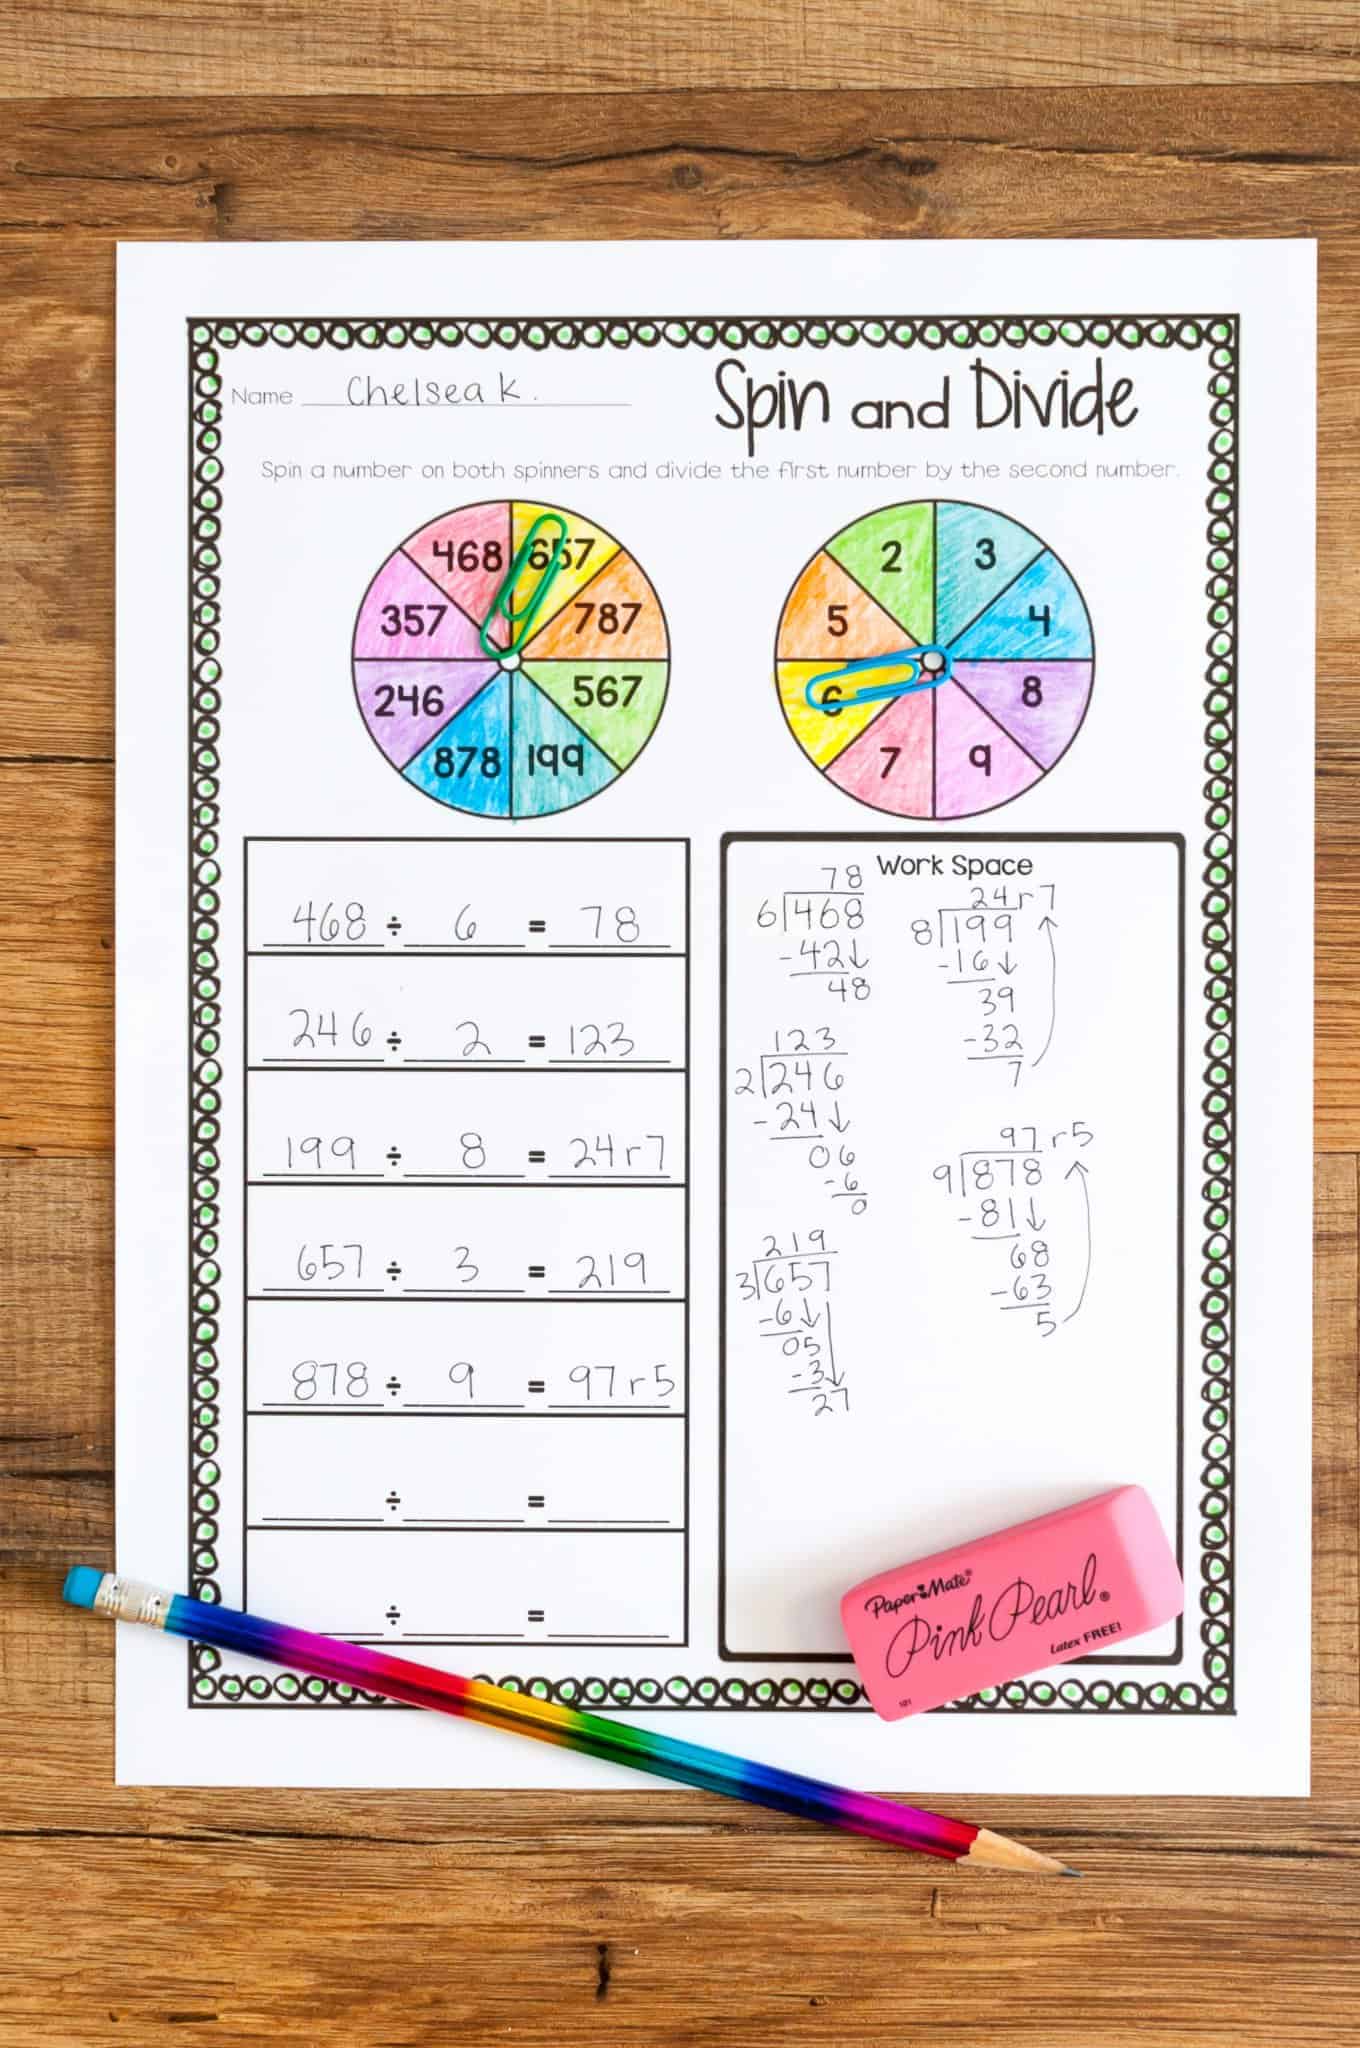 Name Chelsea K.
Spin and Divide
Spin a number on both spinners and divide the first number by the second number.
468 657
357 787
246 567
878 199
2 3
5 4
6 8
7 9
468 ÷ 6 = 78
246 ÷ 2 = 123
199 ÷ 8 = 24 r7
657 ÷ 3 = 219
878 ÷ 9 = 97 r5
÷ =
÷ =
Work Space
78
6 468
-42
48
123
2 246
-24
06
-6
0
219
3 657
-6
05
-3
27
24 r7
8 199
-16
39
-32
7
97 r5
9 878
-81
68
-63
5
Paper Mate®
Pink Pearl®
Latex FREE!
101